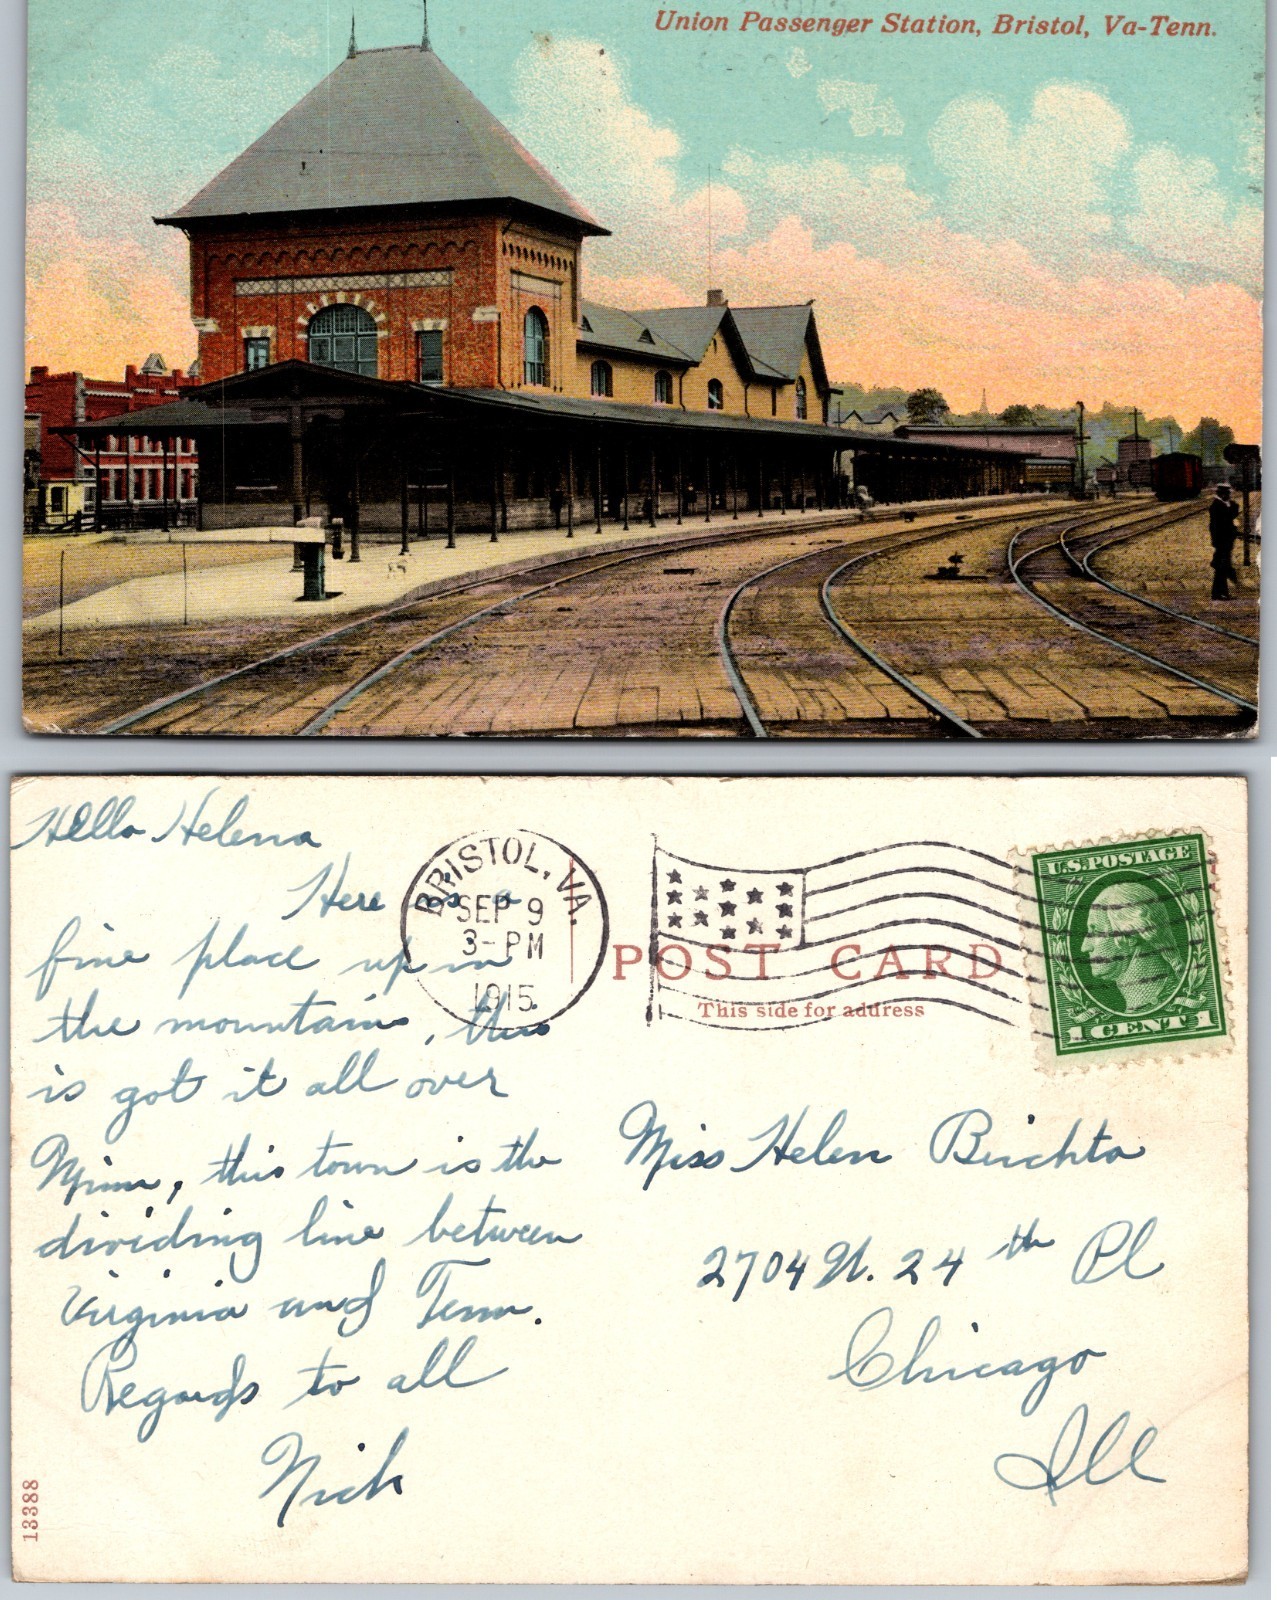 Union Passenger Station, Bristol, Va-Tenn.
Hello Helena
Here is a
fine place up in
the mountains, this
is got it all over
Minn, this town is the
dividing line between
Virginia and Tenn.
Regards to all
Nick
13388
BRISTOL, VA.
SEP 9
3-PM
1915
POST CARD
This side for address
U.S. POSTAGE
1 CENT 1
Miss Helen Birchta
2704 N. 24th Pl
Chicago
Ill